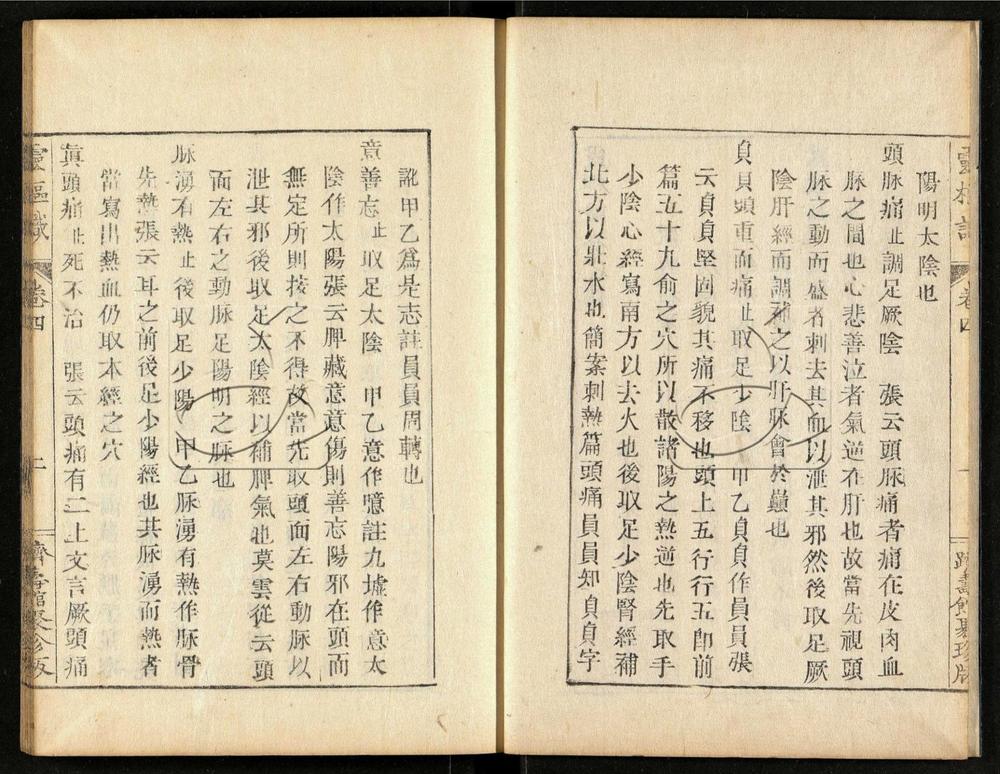 靈樞識
卷四
躋壽館聚珍版
陽明太陰也
頭脉痛止調足厥陰　張云頭脉痛者痛在皮肉血
脉之間也心悲善泣者氣逆在肝也故當先視頭
脉之動而盛者刺去其血以泄其邪然後取足厥
陰肝經而調補之以肝脉會於巔也
貞貞頭重而痛止取足少陰　甲乙貞貞作員員張
云貞貞堅固貌其痛不移也頭上五行行五卽前
篇五十九俞之穴所以散諸陽之熱逆也先取手
少陰心經寫南方以去火也後取足少陰腎經補
北方以壯水也簡案刺熱篇頭痛員員知貞貞字
訛甲乙爲是志註員員周轉也
意善忘止取足太陰　甲乙意作噫註九墟作意太
陰作太陽張云脾藏意意傷則善忘陽邪在頭而
無定所則按之不得故當先取頭面左右動脉以
泄其邪後取足太陰經以補脾氣也莫雲從云頭
面左右之動脉足陽明之脉也
脉湧有熱止後取足少陽　甲乙脉湧有熱作脉骨
先熱張云耳之前後足少陽經也其脉湧而熱者
當寫出熱血仍取本經之穴
眞頭痛止死不治　張云頭痛有二上文言厥頭痛
靈樞識
卷四
二
躋壽館聚珍版